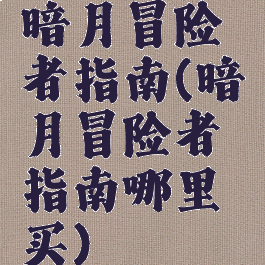 暗月冒险
者指南(暗
月冒险者
指南哪里
买)